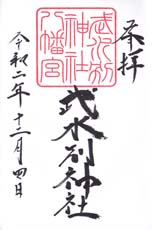 奉拝
武水別神社
武水別
神社
八幡宮
令和二年十二月四日